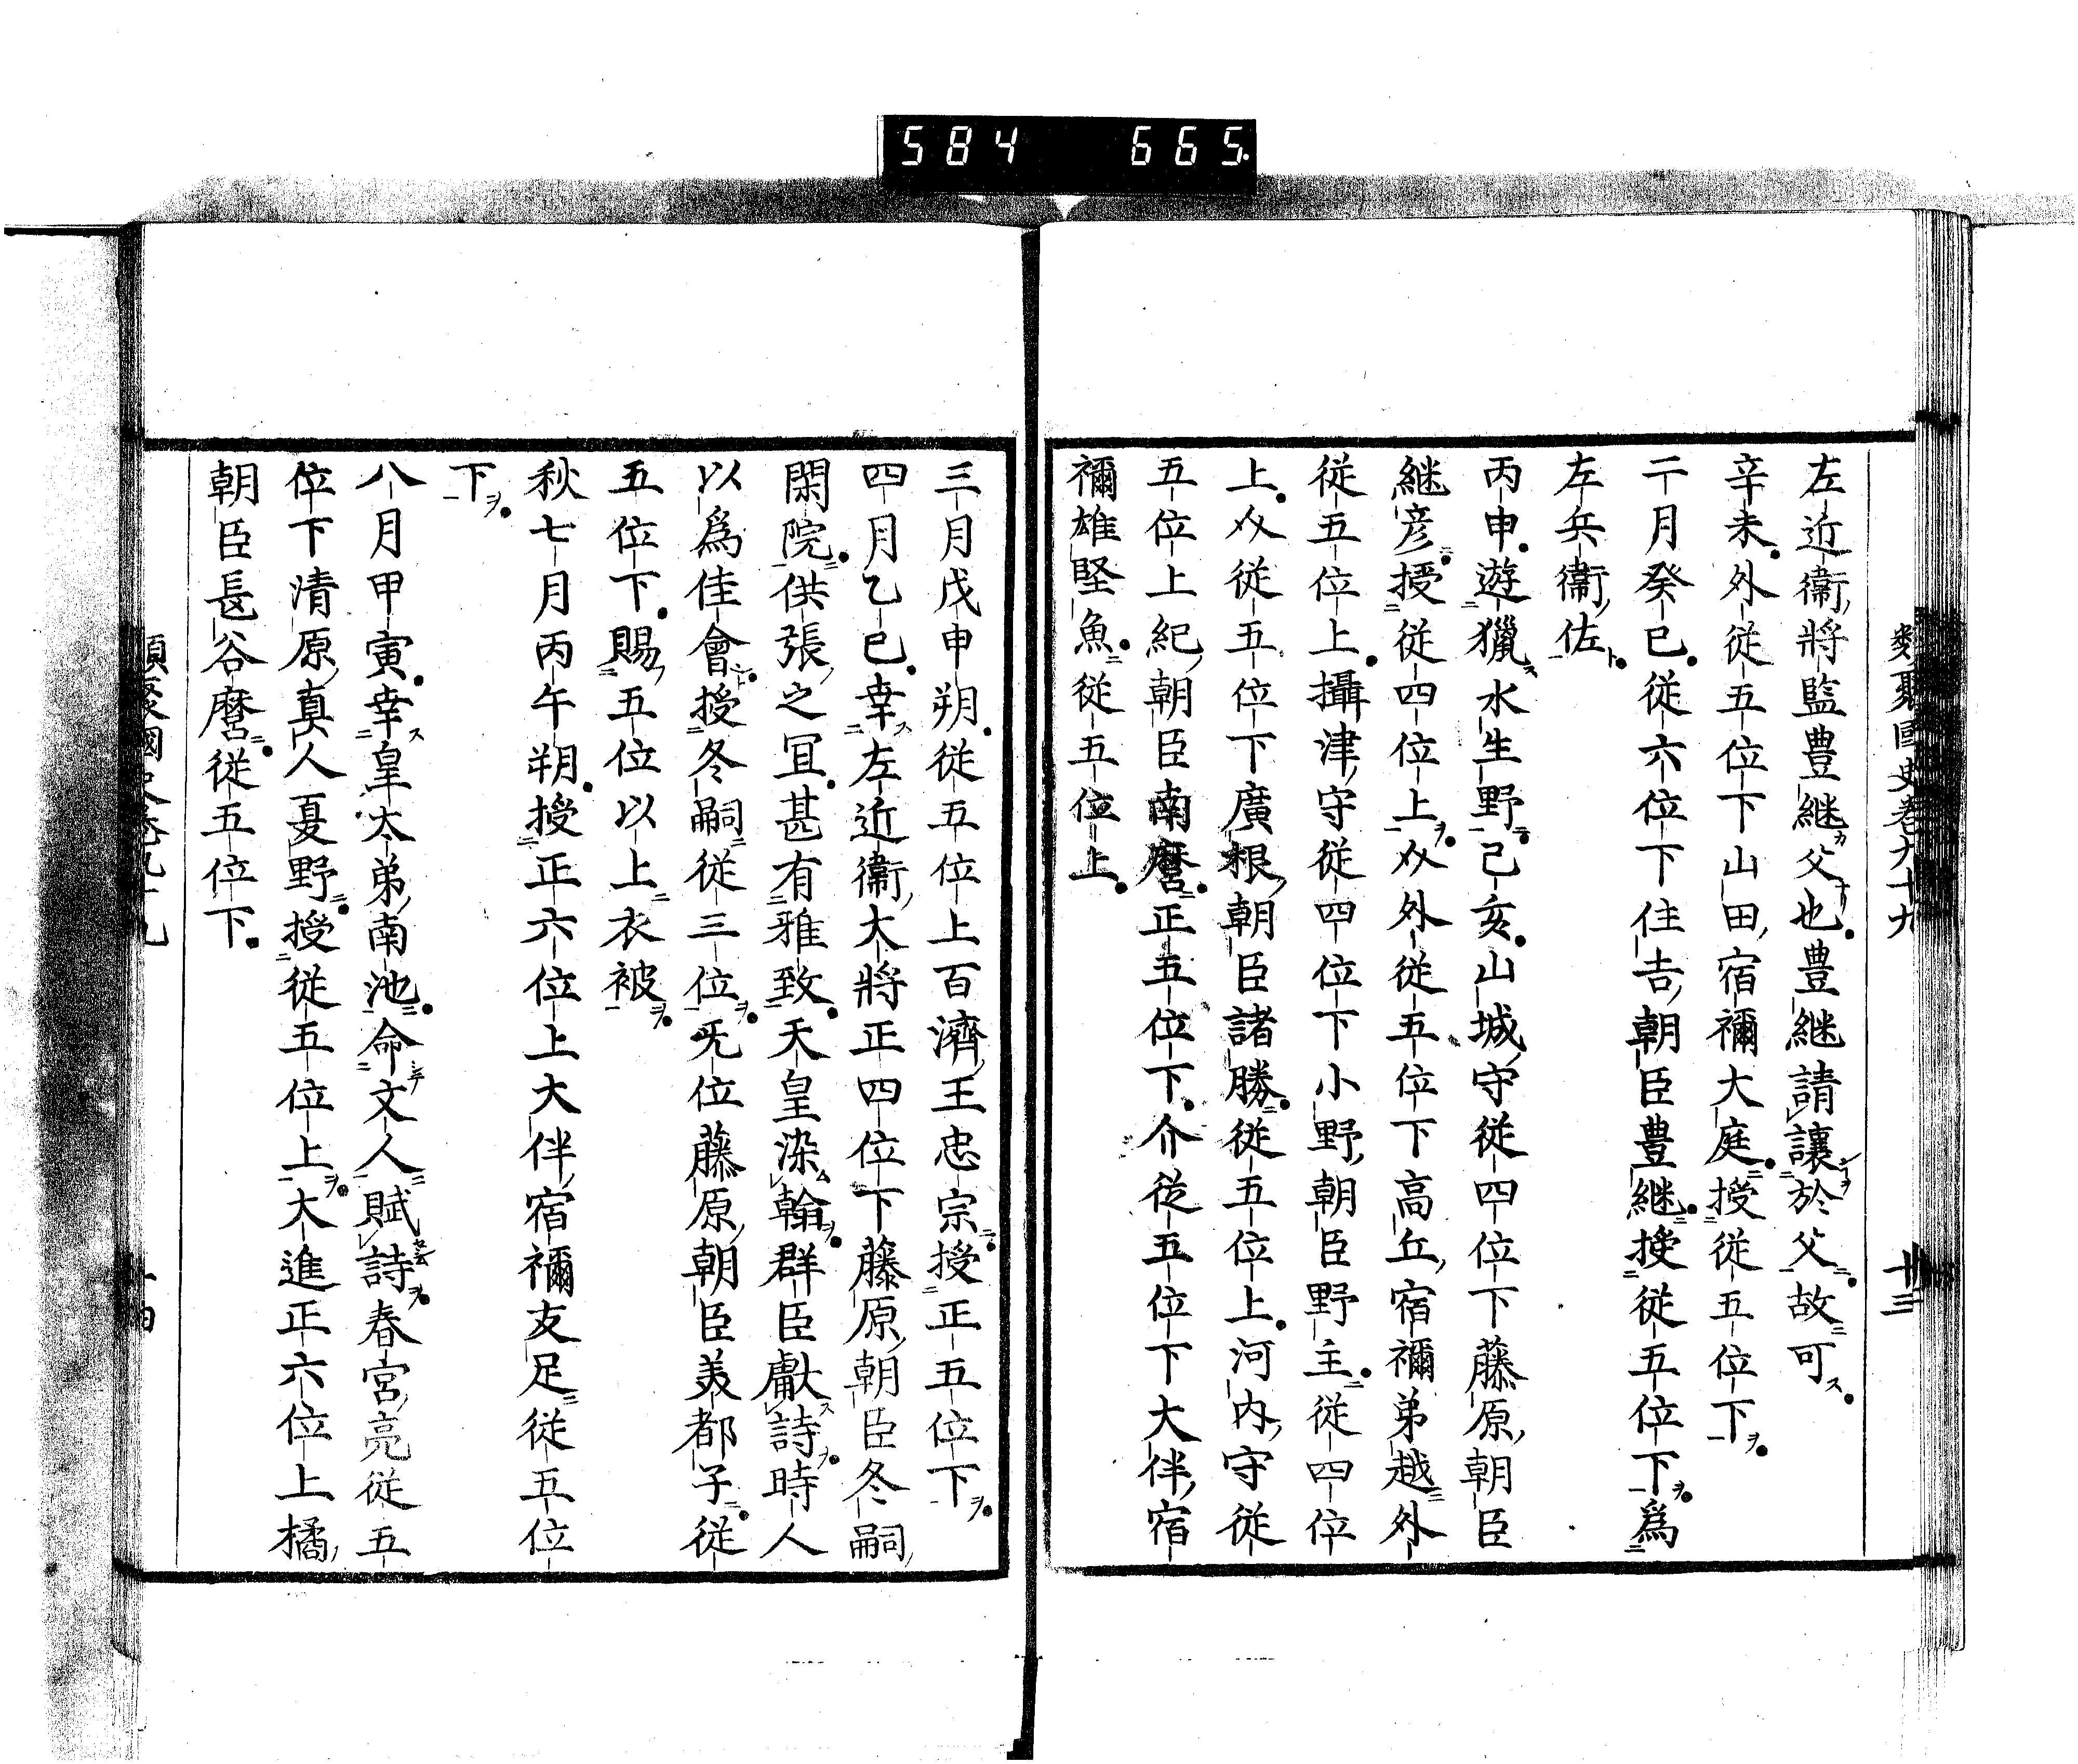 584 665.
類聚國史卷九十九 廿三
左近衞將監豊継父也豊継請讓於父故可
辛未外従五位下山田宿禰大庭授従五位下
二月癸巳従六位下住吉朝臣豊継授従五位下為
左兵衞佐
丙申遊獵水生野己亥山城守従四位下藤原朝臣
継彦授従四位上外従五位下高丘宿禰弟越外
従五位上攝津守従四位下小野朝臣野主従四位
上従五位下廣根朝臣諸勝従五位上河内守従
五位上紀朝臣南麿正五位下介従五位下大伴宿
禰雄堅魚従五位上
三月戊申朔従五位上百濟王忠宗授正五位下
四月乙巳幸左近衞大將正四位下藤原朝臣冬嗣
閑院供張之冝甚有雅致天皇染翰群臣獻詩時人
以為佳會授冬嗣従三位旡位藤原朝臣美都子従
五位下賜五位以上衣被
秋七月丙午朔授正六位上大伴宿禰友足従五位
下
八月甲寅幸皇太弟南池命文人賦詩春宮亮従五
位下清原真人夏野授従五位上大進正六位上橘
朝臣長谷麿従五位下
類聚國史卷九十九